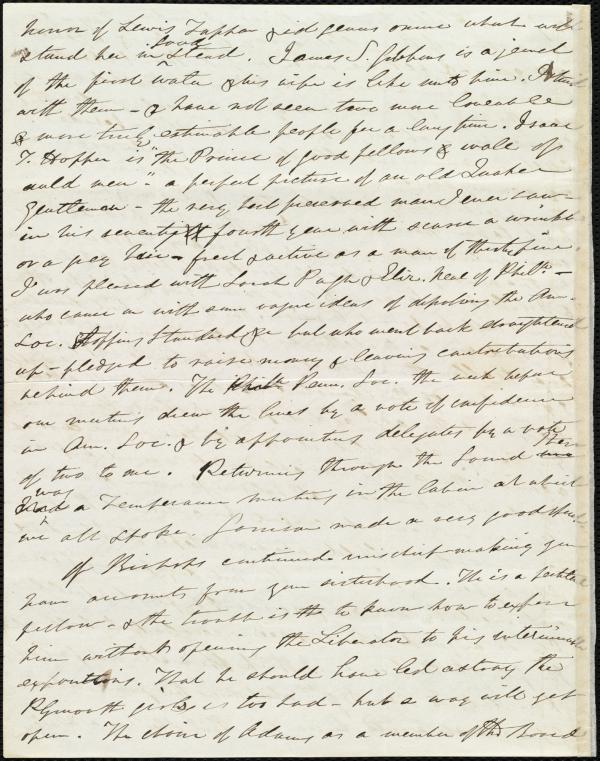 honor of Lewis Tappan & id genus omne what will
stand her in good stead. James S. Gibbons is a jewel
of the first water & his wife is like unto him.
with them - & have not seen two more loveable
& more truly estimable people for a long time. Isaac
T. Hopper is "the Prince of good fellows & wale of
auld men" - a perfect picture of an old Quaker
Gentleman - the very best preserved man I ever saw -
in his seventy fourth year with scarce a wrinkle
or a grey hair - fresh & active as a man of thirty five.
I was pleased with Sarah Pugh & Eliz. Neal of Phila -
who came on with some vague ideas of deposing the Am.
Soc. Stopping Standard &c but who went back straightened
up - pledged to raise money & leaving contributions
behind them. The Penn. Soc. the week before
our meeting drew the lines by a vote of confidence
in Am. Soc. & by appointing delegates by a vote
of two to one. Returning through the Sound there
was a Temperance meeting in the Cabin at which
we all spoke. Garrison made a very good
Of Bishops continued mischief-making you
have accounts from your sisterhood. He is a
fellow - & the trouble is to know how to expose
him without opening the Liberator to his interminable
expositions. That he should have led astray the
Plymouth girls is too bad - but a way will get
open. The choice of Adams as a member of the Board